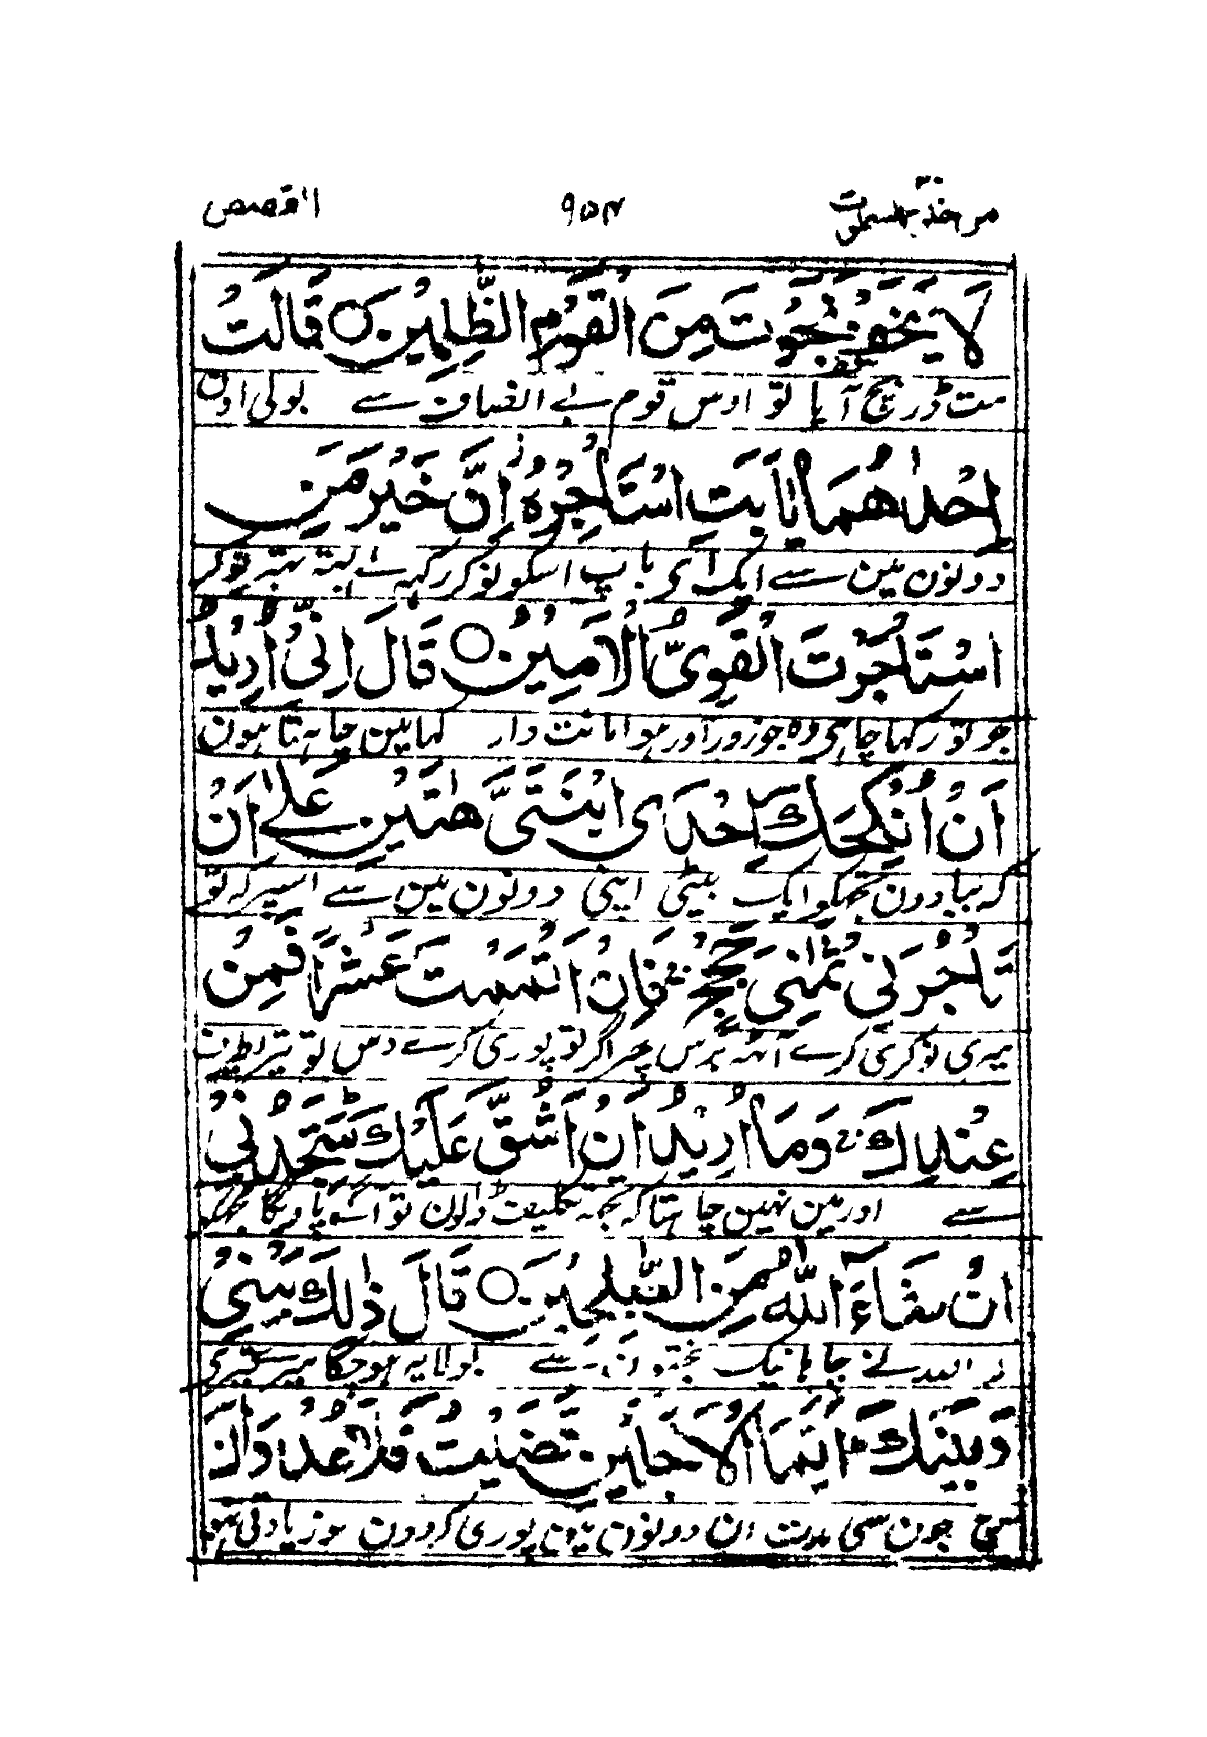 امن خلق السموت ٩٥٤ القصص
لَا تَخَفْ نَجَوْتَ مِنَ الْقَوْمِ الظّٰلِمِيْنَ ○ قَالَتْ
مت ڈر بچ آیا تو اوس قوم بے انصاف سے بولی اون
اِحْدٰىهُمَا يٰۤاَبَتِ اسْتَاْجِرْهُ اِنَّ خَيْرَ مَنِ
دونون مین سے ایک ای باپ اسکو نوکر رکہہ لے البتہ بہتر نوکر
اسْتَاْجَرْتَ الْقَوِىُّ الْاَمِيْنُ ○ قَالَ اِنِّىْ اُرِيْدُ
جو تو رکہا چاہی وہ جو زور آور ہو امانت دار کہا مین چاہتا ہون
اَنْ اُنْكِحَكَ اِحْدَى ابْنَتَىَّ هٰتَيْنِ عَلٰى اَنْ
کہ بیاہ دون تجہکو ایک بیٹی اپنی دونون مین سے اسپر کہ تو
تَاْجُرَنِىْ ثَمٰنِىَ حِجَجٍ فَاِنْ اَتْمَمْتَ عَشْرًا فَمِنْ
میری نوکری کرے آٹہہ برس پہر اگر تو پوری کرے دس تو تیری طرف
عِنْدِكَ وَمَاۤ اُرِيْدُ اَنْ اَشُقَّ عَلَيْكَ سَتَجِدُنِىْ
سے اور مین نہین چاہتا کہ تجہہ پر تکلیف ڈالون تو آگے پاویگا مجہکو
اِنْ شَآءَ اللّٰهُ مِنَ الصّٰلِحِيْنَ ○ قَالَ ذٰلِكَ بَيْنِىْ
اللہ نے چاہا نیک بختون سے بولا یہ ہو چکا میرے تیرے
وَبَيْنَكَ اَيَّمَا الْاَجَلَيْنِ قَضَيْتُ فَلَا عُدْوَانَ
بیچ جون سی مدت ان دونون مین پوری کردون سو زیادتی نہو